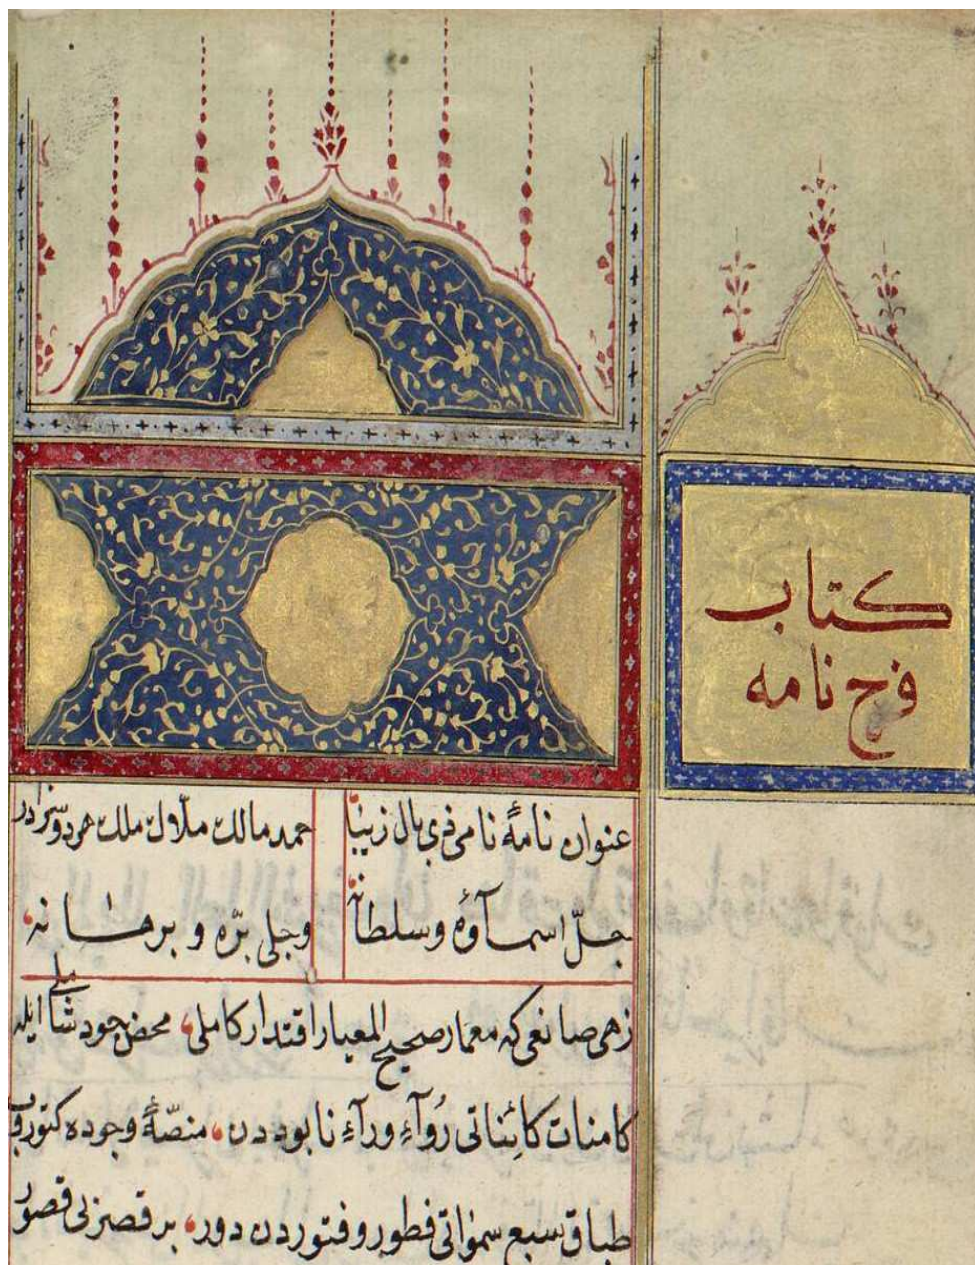 كتاب
فرح نامه
عنوان نامهٔ نامی فری بال زیبا
حمد مالك ملّال ملك هر دو
جلّ اسمآؤه وسلطانه
وجلی برّه و برهانه
زهی صانعی که معمار صحیح المعیار اقتدار کاملی، محض جود شاملی ایله
کامنات کائناتی رُوآءِ ورآءِ نابوددن، منصّهٔ وجوده كتورب
طباق سبع سمواتی فطور و فتوردن دور، بر قصر بی قصور